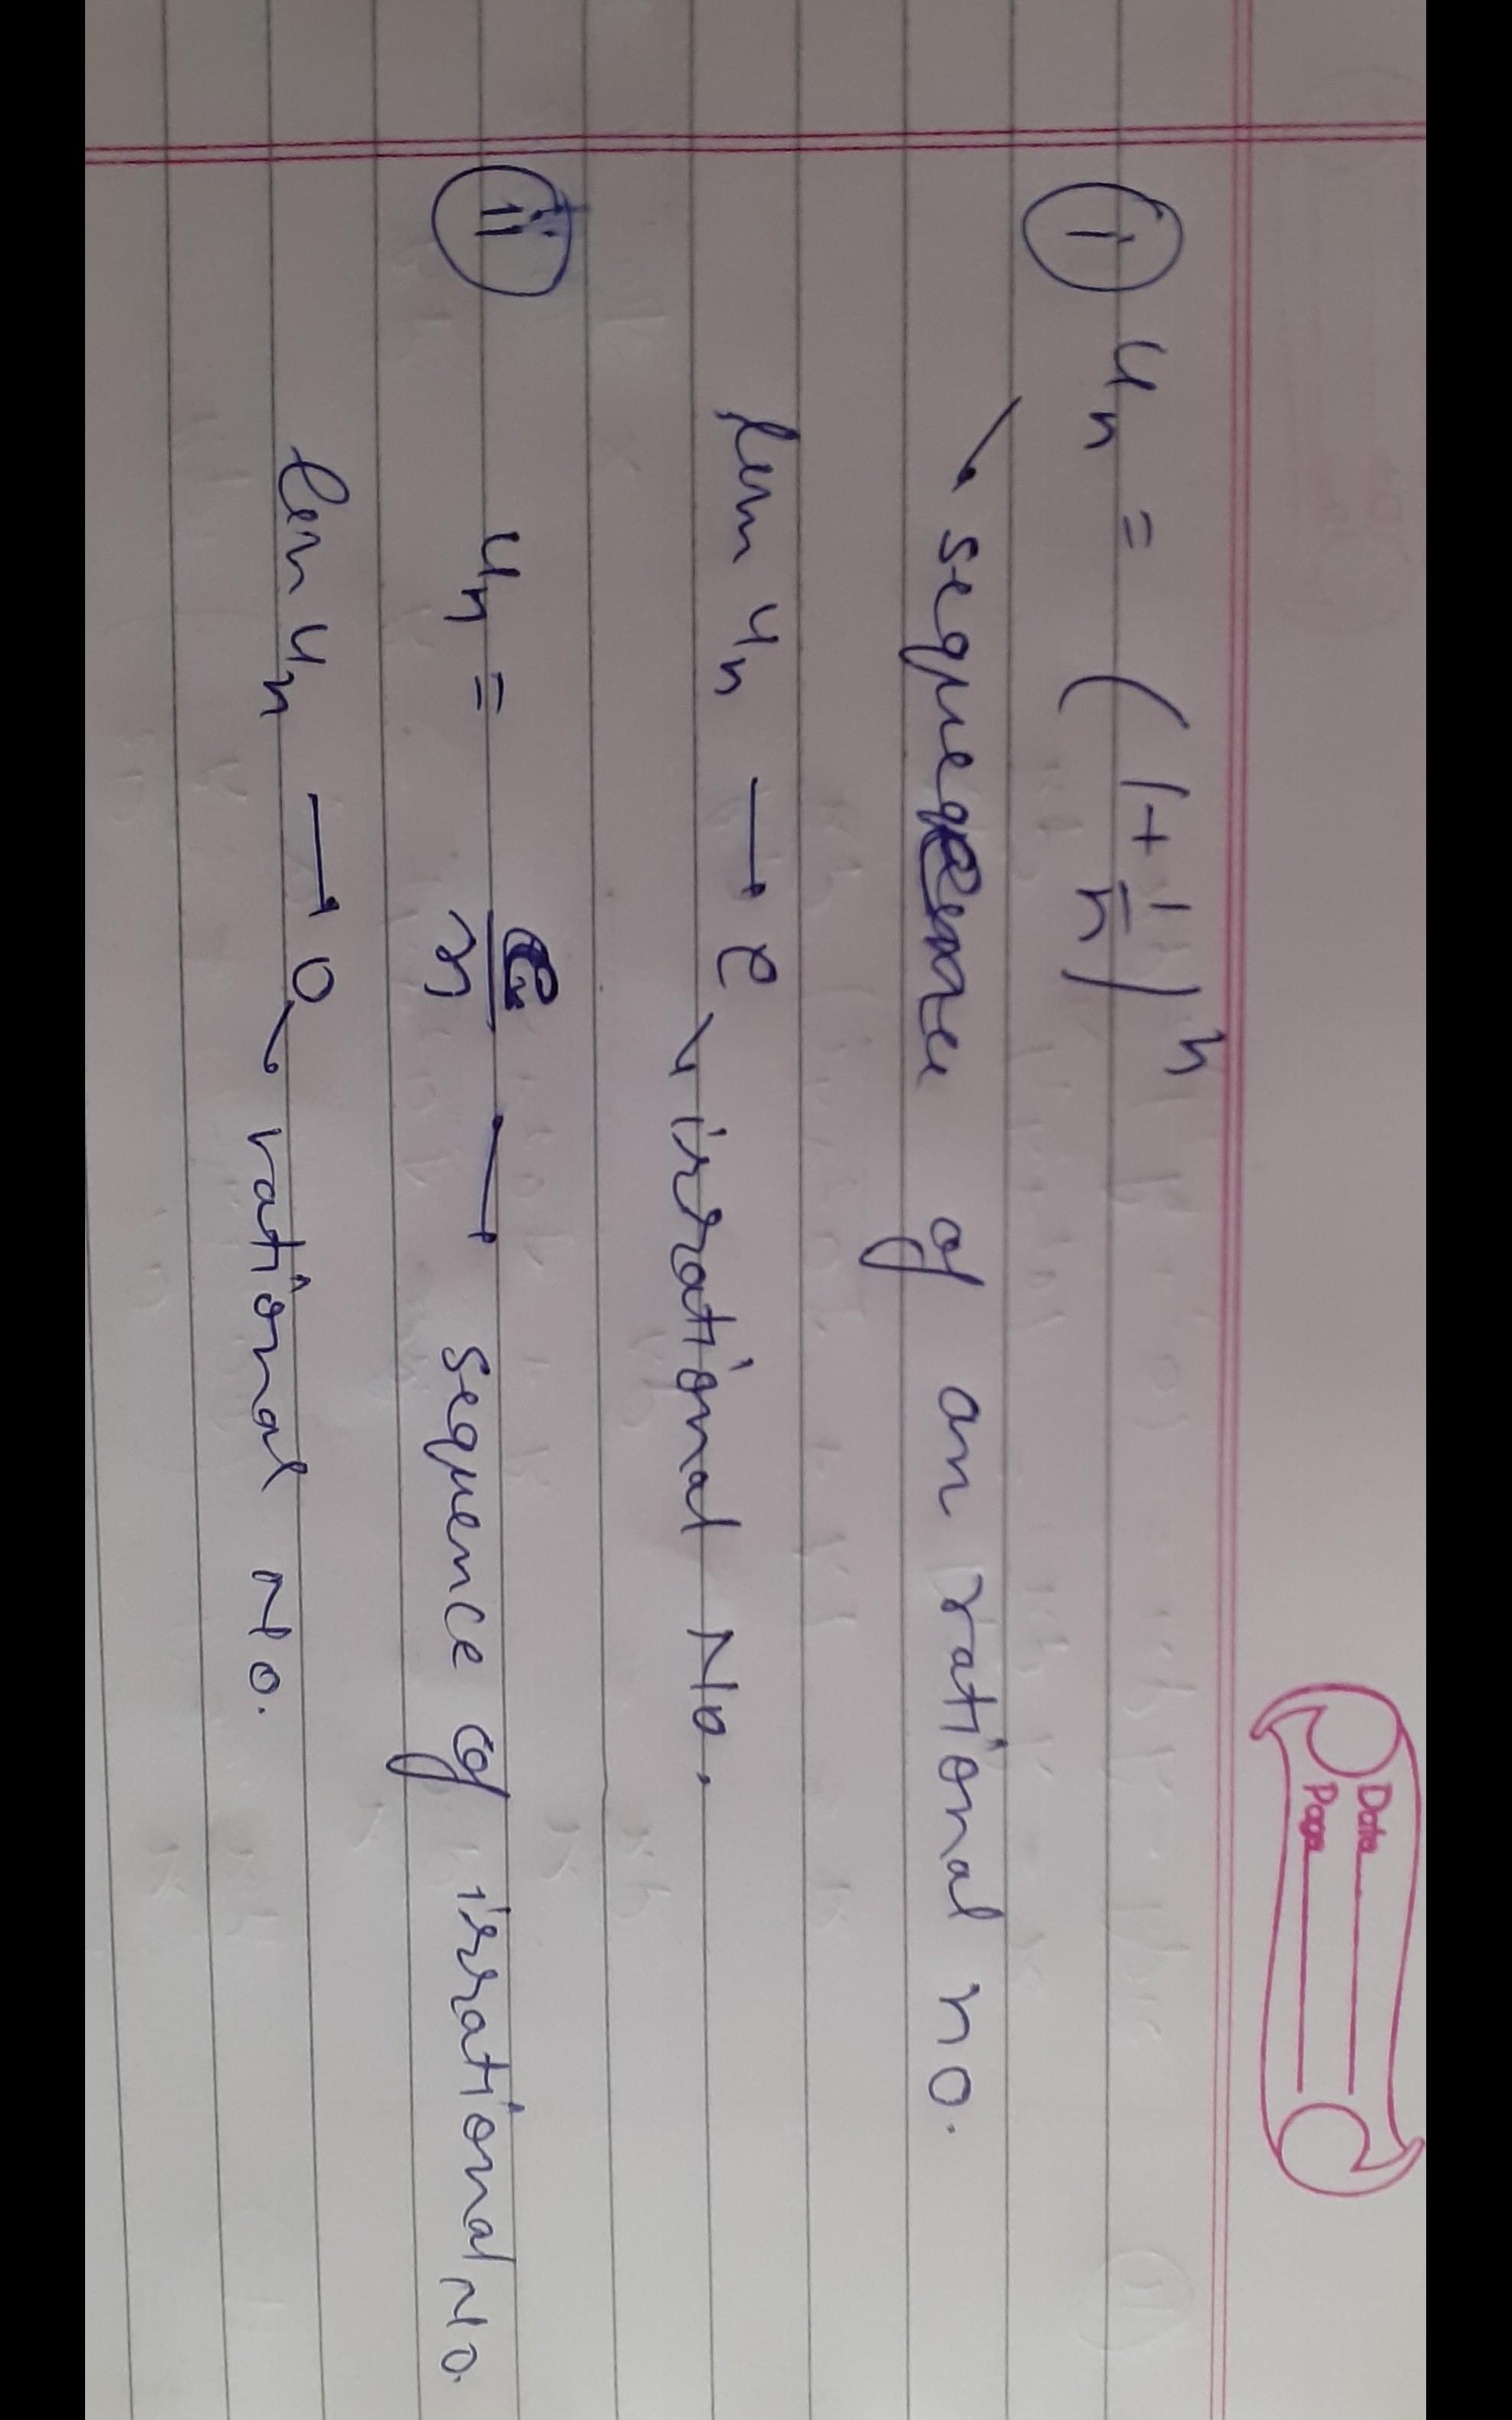 Date
Page
(i) uₙ = (1 + 1/n)ⁿ
→ sequence of an rational no.
lim uₙ → e → irrational No.
(ii) uₙ = e/n → sequence of irrational No.
lim uₙ → 0 → rational No.